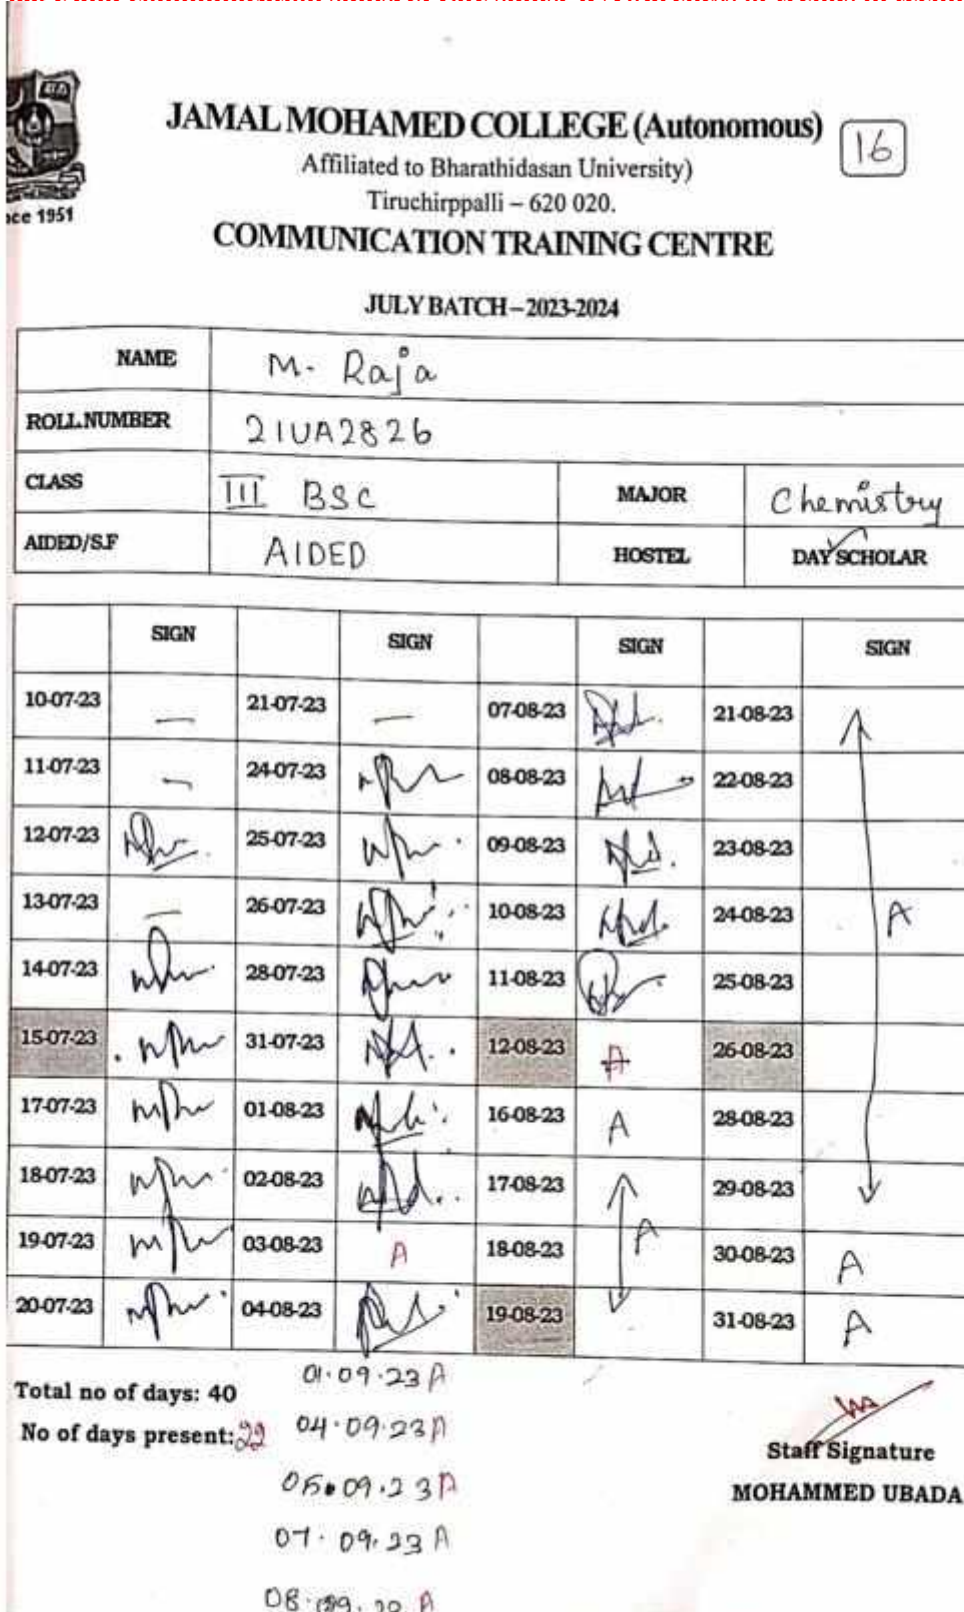 JAMAL MOHAMED COLLEGE (Autonomous)
16
Affiliated to Bharathidasan University)
Tiruchirppalli – 620 020.
nce 1951
COMMUNICATION TRAINING CENTRE
JULY BATCH – 2023-2024
NAME M. Raja
ROLL NUMBER 21UA2826
CLASS III BSC MAJOR Chemistry
AIDED/S.F AIDED HOSTEL DAY SCHOLAR
SIGN SIGN SIGN SIGN
10-07-23 — 21-07-23 — 07-08-23 21-08-23
11-07-23 — 24-07-23 08-08-23 22-08-23
12-07-23 25-07-23 09-08-23 23-08-23
13-07-23 — 26-07-23 10-08-23 24-08-23 A
14-07-23 28-07-23 11-08-23 25-08-23
15-07-23 31-07-23 12-08-23 A 26-08-23
17-07-23 01-08-23 16-08-23 A 28-08-23
18-07-23 02-08-23 17-08-23 29-08-23
19-07-23 03-08-23 A 18-08-23 A 30-08-23 A
20-07-23 04-08-23 19-08-23 31-08-23 A
Total no of days: 40 01.09.23 A
No of days present: 22 04.09.23 A
Staff Signature
05.09.23 A
MOHAMMED UBADA
07.09.23 A
A